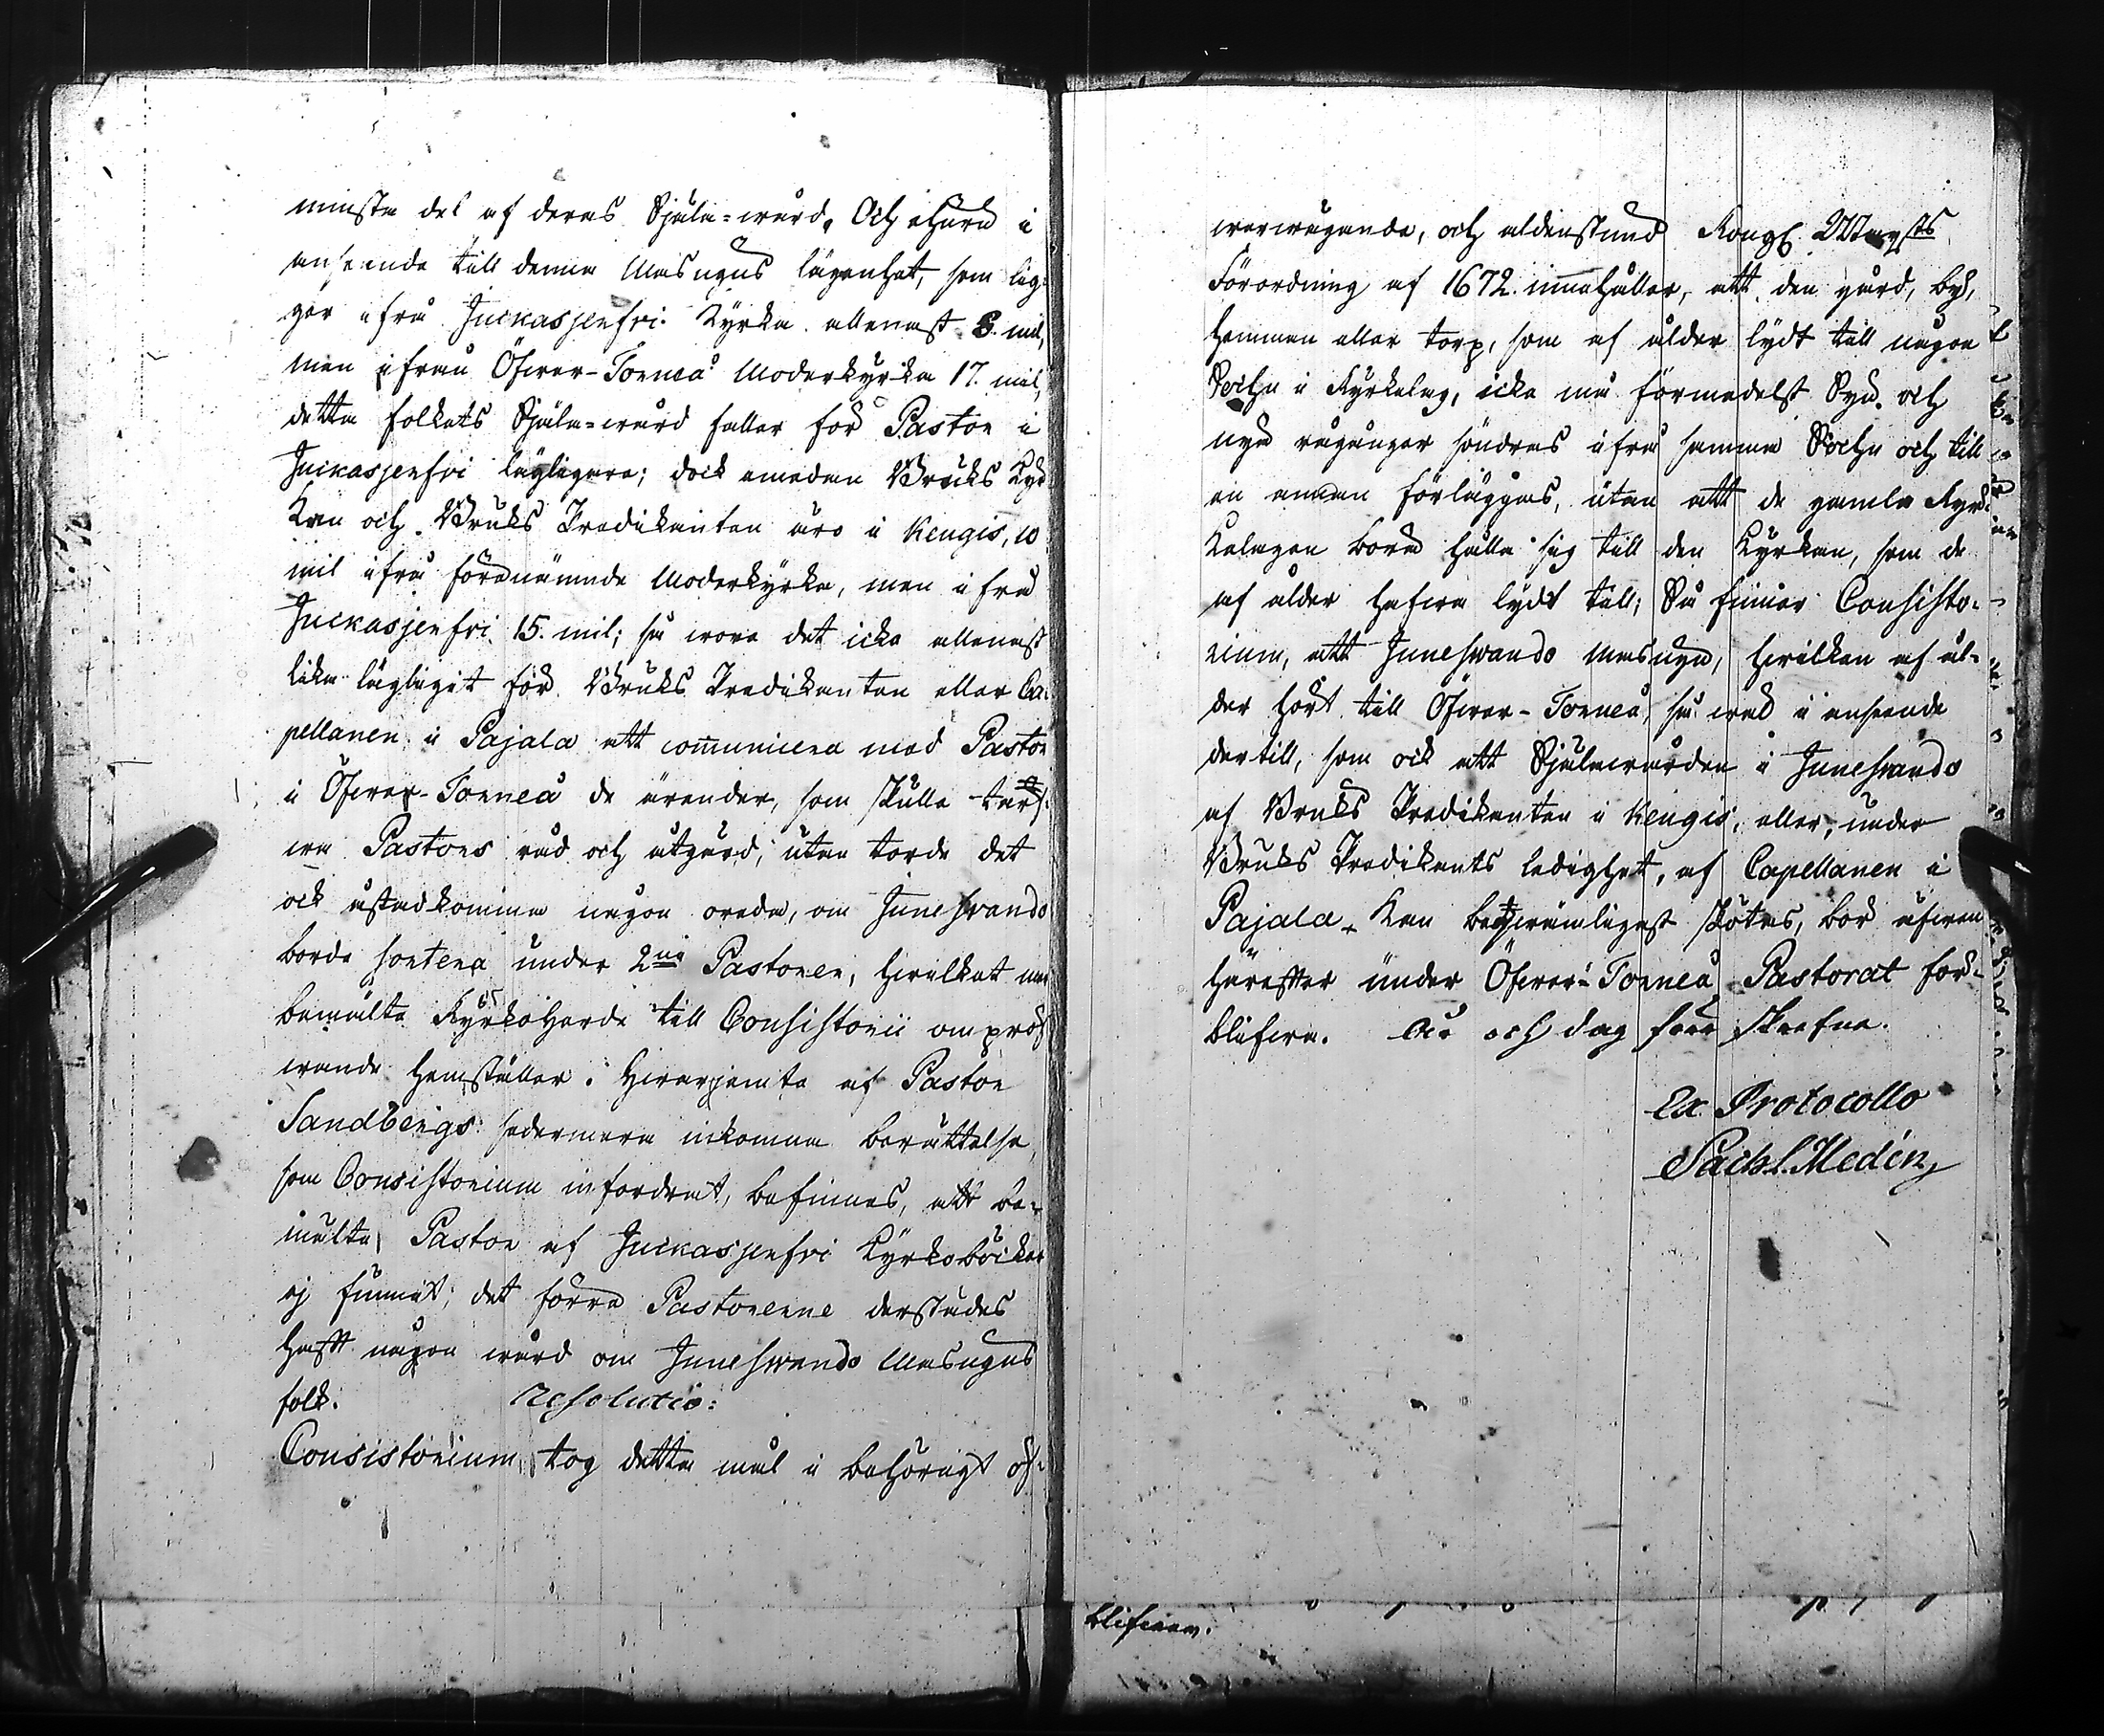 minsta del af deras Själa=wård. Och ehuru i
anseende till denna Masugns lägenhet, som lig-
ger ifrå Juckasjerfvi Kyrka allenast 8. mil,
men ifrån Öfwer-Torneå Moderkyrka 17. mil,
detta folkets Själa=wård faller för Pastor i
Juckasjerfvi läglígare; dock emedan Bruks Kyr
kan och Bruks Predikanten äro i Kengis, 10
mil ifrå förenämnde Moderkyrka, men ifrå
Juckasjerfvi 15. mil; så wore det icke allenast
lika lägligit för Bruks Predikanten eller Ca-
pellanen i Pajala att communicera med Pastor
i Öfwer-Torneå de ärender, som skulle tarf-
wa Pastors råd och åtgärd, utan torde det
ock åstadkomma någon oreda, om Junoswando
borde sortera under 2ne Pastorer, hwilket
bemälte Kyrkoherde till Consistorii ompröf
wande hemställer. Hwarjemte af Pastor
Sandbergs sedermera inkomna berättelse,
som Consistorium infordrat, befinnes, att be-
mälte Pastor af Juckasjerfvi Kyrkoböcker
ej funnit, det förra Pastorerne derstädes
haft någon wård om Junoswando Masugns
folk. Resolutio:
Consistorium tog detta mål i behörigt öf-
werwägande, och aldenstund Kongl. Maysts
Förordning af 1672. innehåller, att den gård, by,
hemman eller torp, som af ålder lydt till någon
Sochn i Kyrkolag, icke må förmedelst Syn och
nya rågångar söndras ifrå samma Sochn och till
en annan förläggas, utan att de gamla Kyr-
kolagen böra hålla sig till den Kyrkan, som de
af ålder hafwa lydt till; Så finner Consisto-
rium, att Junoswando Masugn, hwilken af ål-
der hört till Öfwer-Torneå, så wäl i anseende
dertill, som ock att Själawården i Junoswando
af Bruks Predikanten i Kengis, eller, under
Bruks Predikants ledighet, af Capellanen i
Pajala kan beqwämligast skötas, bör äfwen
härefter under Öfwer-Torneå Pastorat för-
blifwa. År och dag förr skrefne.
Ex Protocollo
Medin
blifwa.